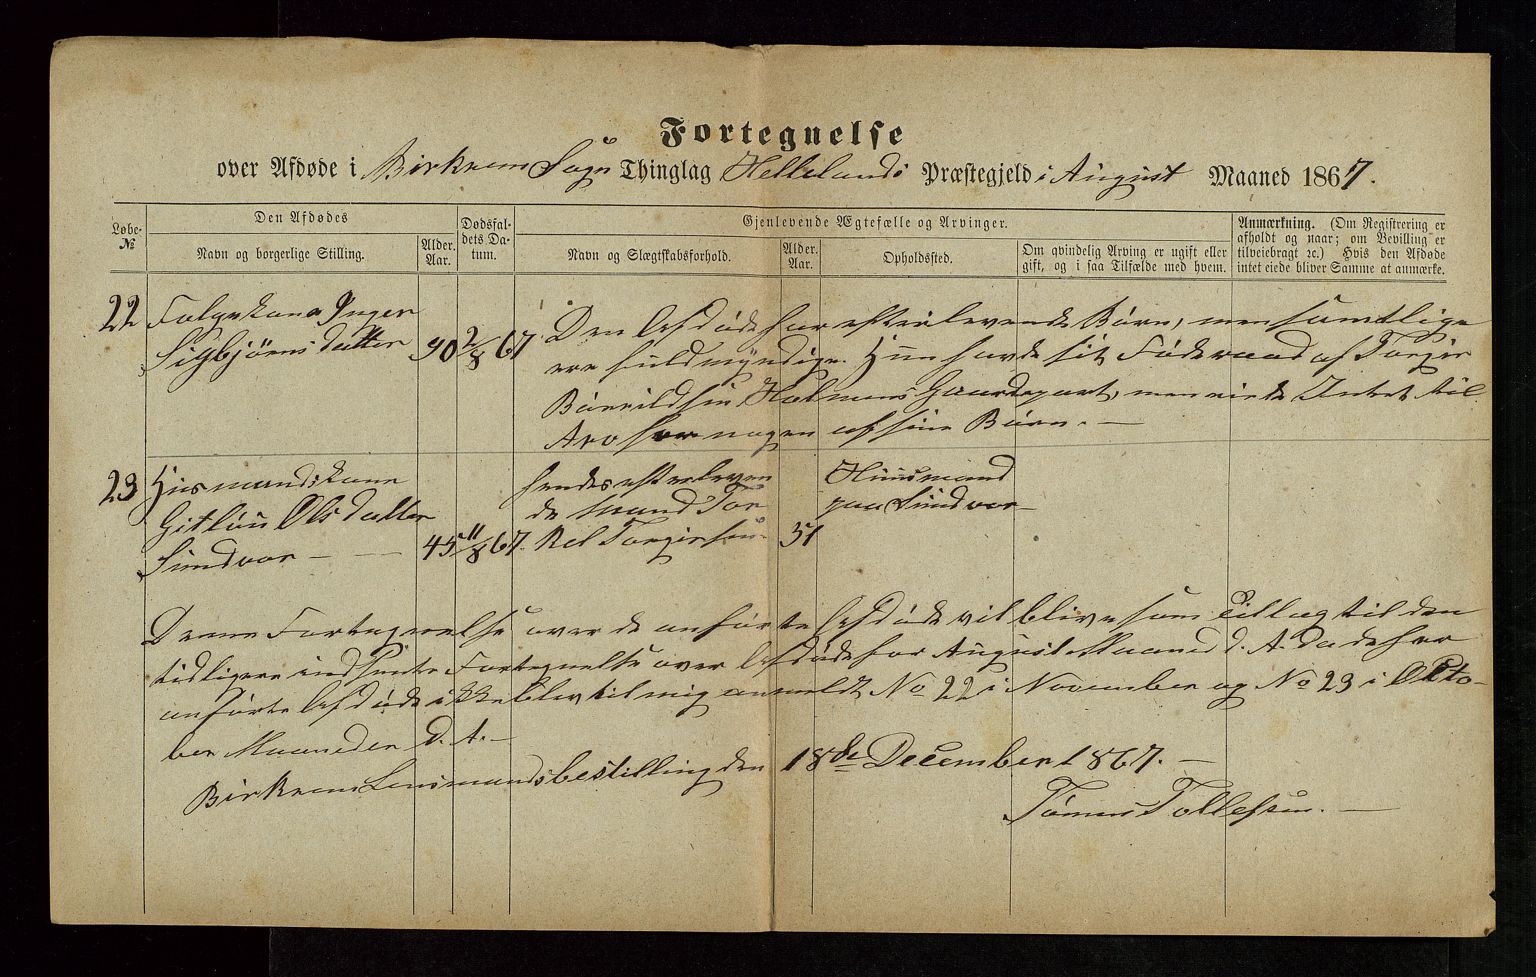 Fortegnelse
over Afdøde i Birkrem Sogn Thinglag Hellelands Præstegjeld i August Maaned 1867.
Løbe-
No
Den Afdødes
Navn og borgerlige Stilling.
Alder.
Aar.
Dødsfal-
dets Da-
tum.
Gjenlevende Ægtefælle og Arvinger.
Navn og Slægtskabsforhold.
Alder.
Aar.
Opholdssted.
Om qvindelig Arving er ugift eller
gift, og i saa Tilfælde med hvem.
Anmærkning. (Om Registrering er
afholdt og naar; om Bevilling er
tilveiebragt 2c.) Hvis den Afdøde
intet eiede bliver Samme at anmærke.
22 Folgekone Inger
Sigbjørnsdatter 90 2/8 67.
Den Afdøde har efterlevende Børn, men samtlige
ere fuldmyndige. Hun havde sit Føderaad af Torgir
Bowildsen Holmens Gaardepart, men eiede Intet til
Arv for nogen af sine Børn. —
23 Husmandskone
Gitlou Olsdatter
Sundvor — — 45 11/8 67.
hendes efterleven
de Mand Tor
kel Torgersen 51
Huusmand
paa Sundvor
Denne Fortegnelse over de anførte Afdøde vil blive som Tillæg til den
tidligere indsente Fortegnelse over Afdøde for August Maaned d. A. da de her
anførte Afdøde ikke blev til mig anmeldt No 22 i November og No 23 i Okto-
ber Maaneder d. A. —
Birkrem Lensmandsbestilling den 18de December 1867. —
Tønnes Tollefsen. —